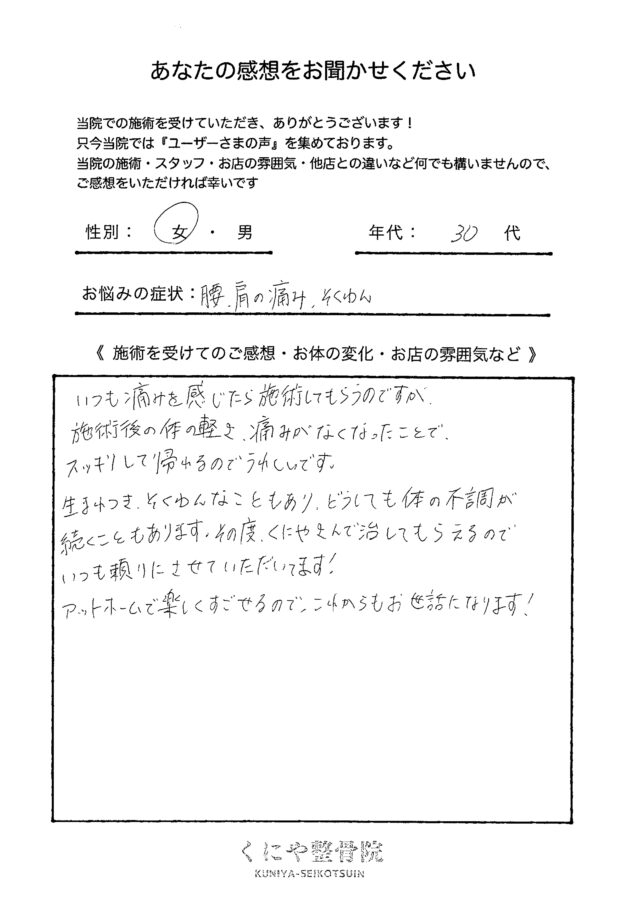 あなたの感想をお聞かせください
当院での施術を受けていただき、ありがとうございます！
只今当院では『ユーザーさまの声』を集めております。
当院の施術・スタッフ・お店の雰囲気・他店との違いなど何でも構いませんので、
ご感想をいただければ幸いです
性別： 女 ・ 男 年代： 30 代
お悩みの症状：腰、肩の痛み、そくわん
《 施術を受けてのご感想・お体の変化・お店の雰囲気など 》
いつも痛みを感じたら施術してもらうのですが、
施術後の体の軽さ、痛みがなくなったことで、
スッキリして帰れるのでうれしいです。
生まれつき、そくわんなこともあり、どうしても体の不調が
続くこともあります。その度、くにやさんで治してもらえるので
いつも頼りにさせていただいてます！
アットホームで楽しくすごせるので、これからもお世話になります！
くにや整骨院
KUNIYA-SEIKOTSUIN